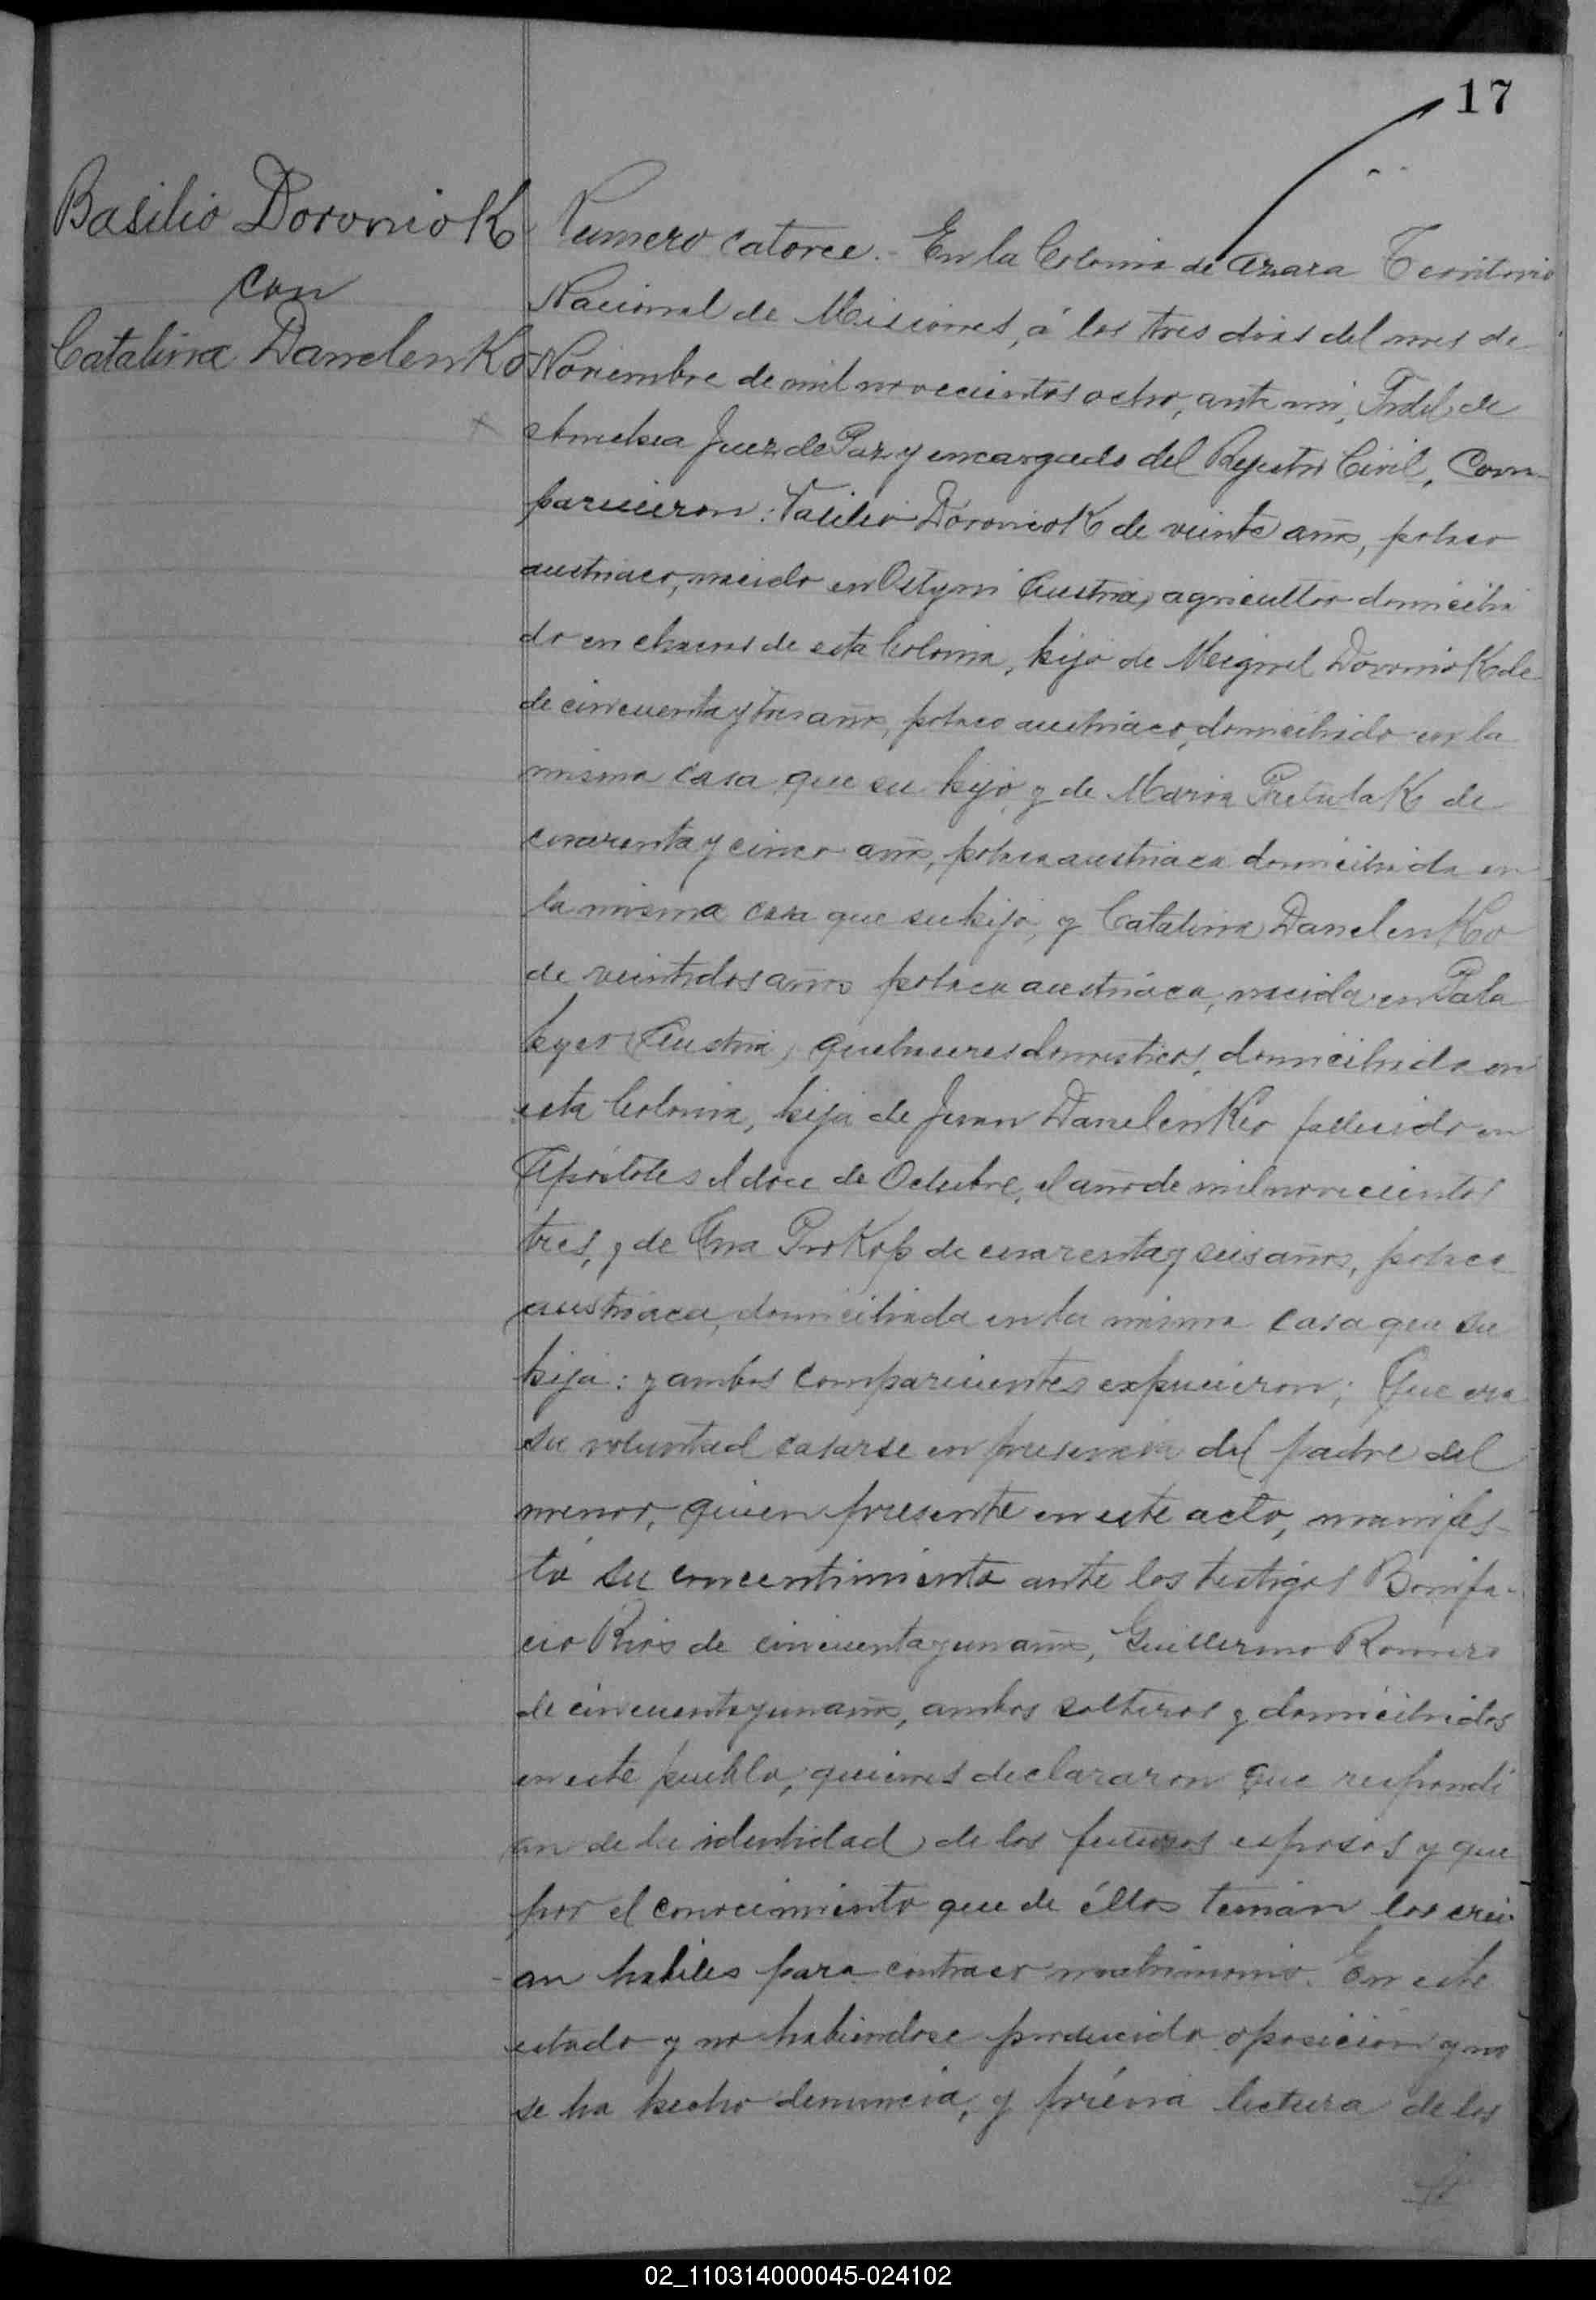 17
Basilio DoronioK
con
Catalina DanelenKo
Numero catorce.- En la Colonia de Azara Territorio
Nacional de Misiones, á los tres dias del mes de
Noviembre de mil novecientos ocho, ante mi, Fidel de
Juez de Paz y encargado del Rejistro Civil, Com-
parecieron: Vasilio DoronioK de veinte años, polaco
austriaco, nacido en Austria, agricultor domicilia
do en chacras de esta Colonia, hijo de Miguel DoronioK de
de cincuenta y tres años, polaco austriaco, domiciliado en la
misma casa que su hijo y de Maria de
cuarenta y cinco años, polaca austriaca domiciliada en
la misma casa que su hijo, y Catalina DanelenKo
de veintidos años polaca austriaca, nacida en Pala
hyer Austria, quehaceres domesticos, domiciliada en
esta Colonia, hija de Juan DanelenKo fallecido en
Apóstoles el doce de Octubre, el año de mil novecientos
tres, y de Ana ProKop de cuarenta y seis años, polaca
austriaca, domiciliada en la misma casa que su
hija: y ambos comparecientes expucieron; Que era
su voluntad casarse en presencia del padre del
menor, quien presente en este acto, manifes-
tó su concentimiento ante los testigos Bonifa-
cio Rios de cincuenta y un años, Guillermo Romero
de cincuenta y un años, ambos solteros y domiciliados
en este pueblo, quienes declararon que respondi
an de la identidad de los futuros esposos y que
por el conocimiento que de éllos tenian los crei-
an habiles para contraer matrimonio. En este
estado y no habiendose producido oposición y no
se ha hecho denuncia, y prévia lectura de los
02_110314000045-024102